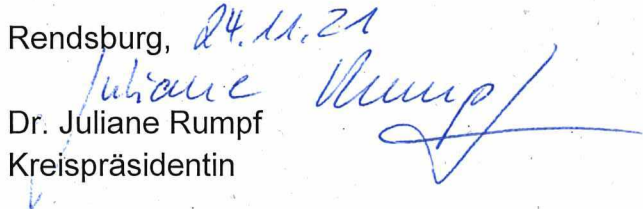 Rendsburg, 24.11.21
Juliane Rumpf
Dr. Juliane Rumpf
Kreispräsidentin